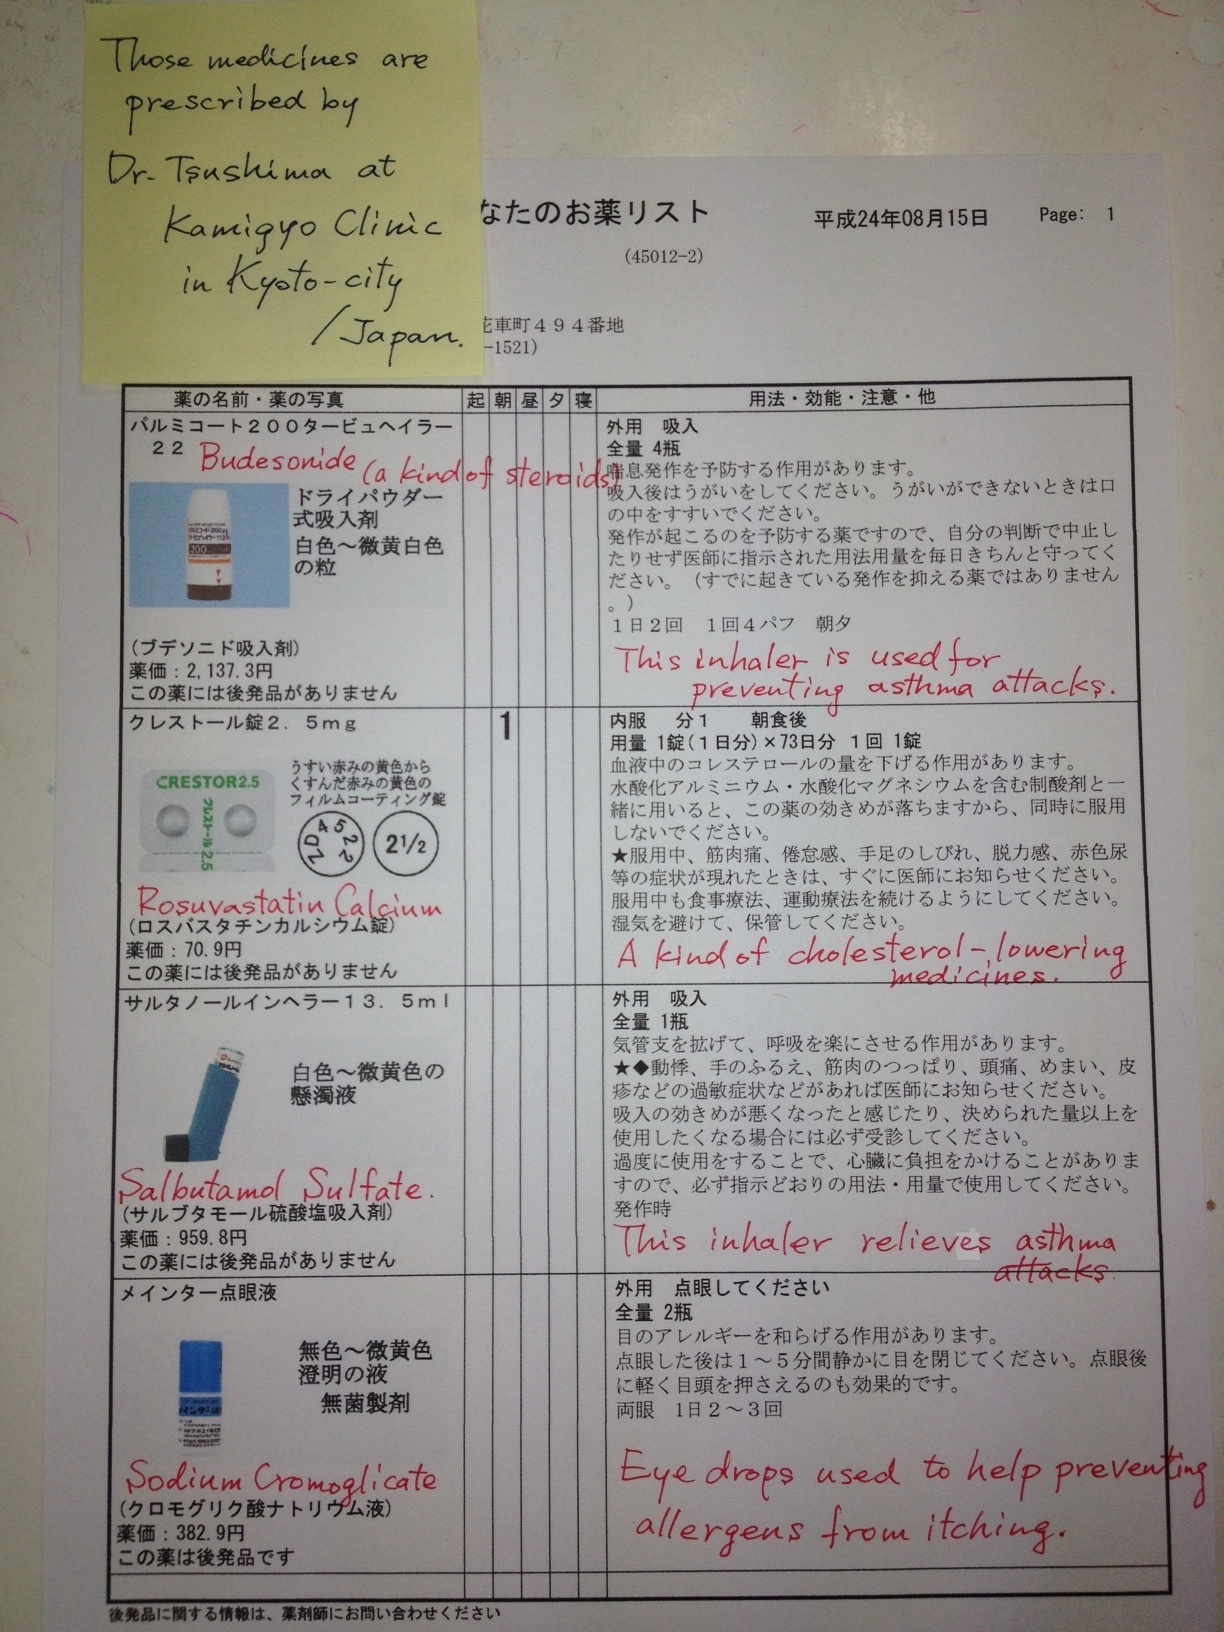 Those medicines are
prescribed by
Dr. Tsushima at
Kamigyo Clinic
in Kyoto-city
/Japan.
なたのお薬リスト
平成24年08月15日
Page: 1
(45012-2)
花車町４９４番地
-1521)
薬の名前・薬の写真 起 朝 昼 夕 寝 用法・効能・注意・他
パルミコート２００タービュヘイラー
２２
Budesonide (a kind of steroids)
ドライパウダー
式吸入剤
白色～微黄白色
の粒
200
(ブデソニド吸入剤)
薬価：2,137.3円
この薬には後発品がありません
外用　吸入
全量 4瓶
喘息発作を予防する作用があります。
吸入後はうがいをしてください。うがいができないときは口
の中をすすいでください。
発作が起こるのを予防する薬ですので、自分の判断で中止し
たりせず医師に指示された用法用量を毎日きちんと守ってく
ださい。（すでに起きている発作を抑える薬ではありません
。）
１日２回　１回４パフ　朝夕
This inhaler is used for
preventing asthma attacks.
クレストール錠２．５ｍｇ
1
CRESTOR2.5
クレストール2.5
うすい赤みの黄色から
くすんだ赤みの黄色の
フィルムコーティング錠
ZD4522
2½
Rosuvastatin Calcium
(ロスバスタチンカルシウム錠)
薬価：70.9円
この薬には後発品がありません
内服　分１　　朝食後
用量 1錠(１日分)×73日分 １回 1錠
血液中のコレステロールの量を下げる作用があります。
水酸化アルミニウム・水酸化マグネシウムを含む制酸剤と一
緒に用いると、この薬の効きめが落ちますから、同時に服用
しないでください。
★服用中、筋肉痛、倦怠感、手足のしびれ、脱力感、赤色尿
等の症状が現れたときは、すぐに医師にお知らせください。
服用中も食事療法、運動療法を続けるようにしてください。
湿気を避けて、保管してください。
A kind of cholesterol-lowering
medicines.
サルタノールインヘラー１３．５ｍｌ
白色～微黄色の
懸濁液
Salbutamol Sulfate.
(サルブタモール硫酸塩吸入剤)
薬価：959.8円
この薬には後発品がありません
外用　吸入
全量 1瓶
気管支を拡げて、呼吸を楽にさせる作用があります。
★◆動悸、手のふるえ、筋肉のつっぱり、頭痛、めまい、皮
疹などの過敏症状などがあれば医師にお知らせください。
吸入の効きめが悪くなったと感じたり、決められた量以上を
使用したくなる場合には必ず受診してください。
過度に使用をすることで、心臓に負担をかけることがありま
すので、必ず指示どおりの用法・用量で使用してください。
発作時
This inhaler relieves asthma
attacks.
メインター点眼液
無色～微黄色
澄明の液
無菌製剤
Sodium Cromoglicate
(クロモグリク酸ナトリウム液)
薬価：382.9円
この薬は後発品です
外用　点眼してください
全量 2瓶
目のアレルギーを和らげる作用があります。
点眼した後は１～５分間静かに目を閉じてください。点眼後
に軽く目頭を押さえるのも効果的です。
両眼　1日２～３回
Eye drops used to help preventing
allergens from itching.
後発品に関する情報は、薬剤師にお問い合わせください